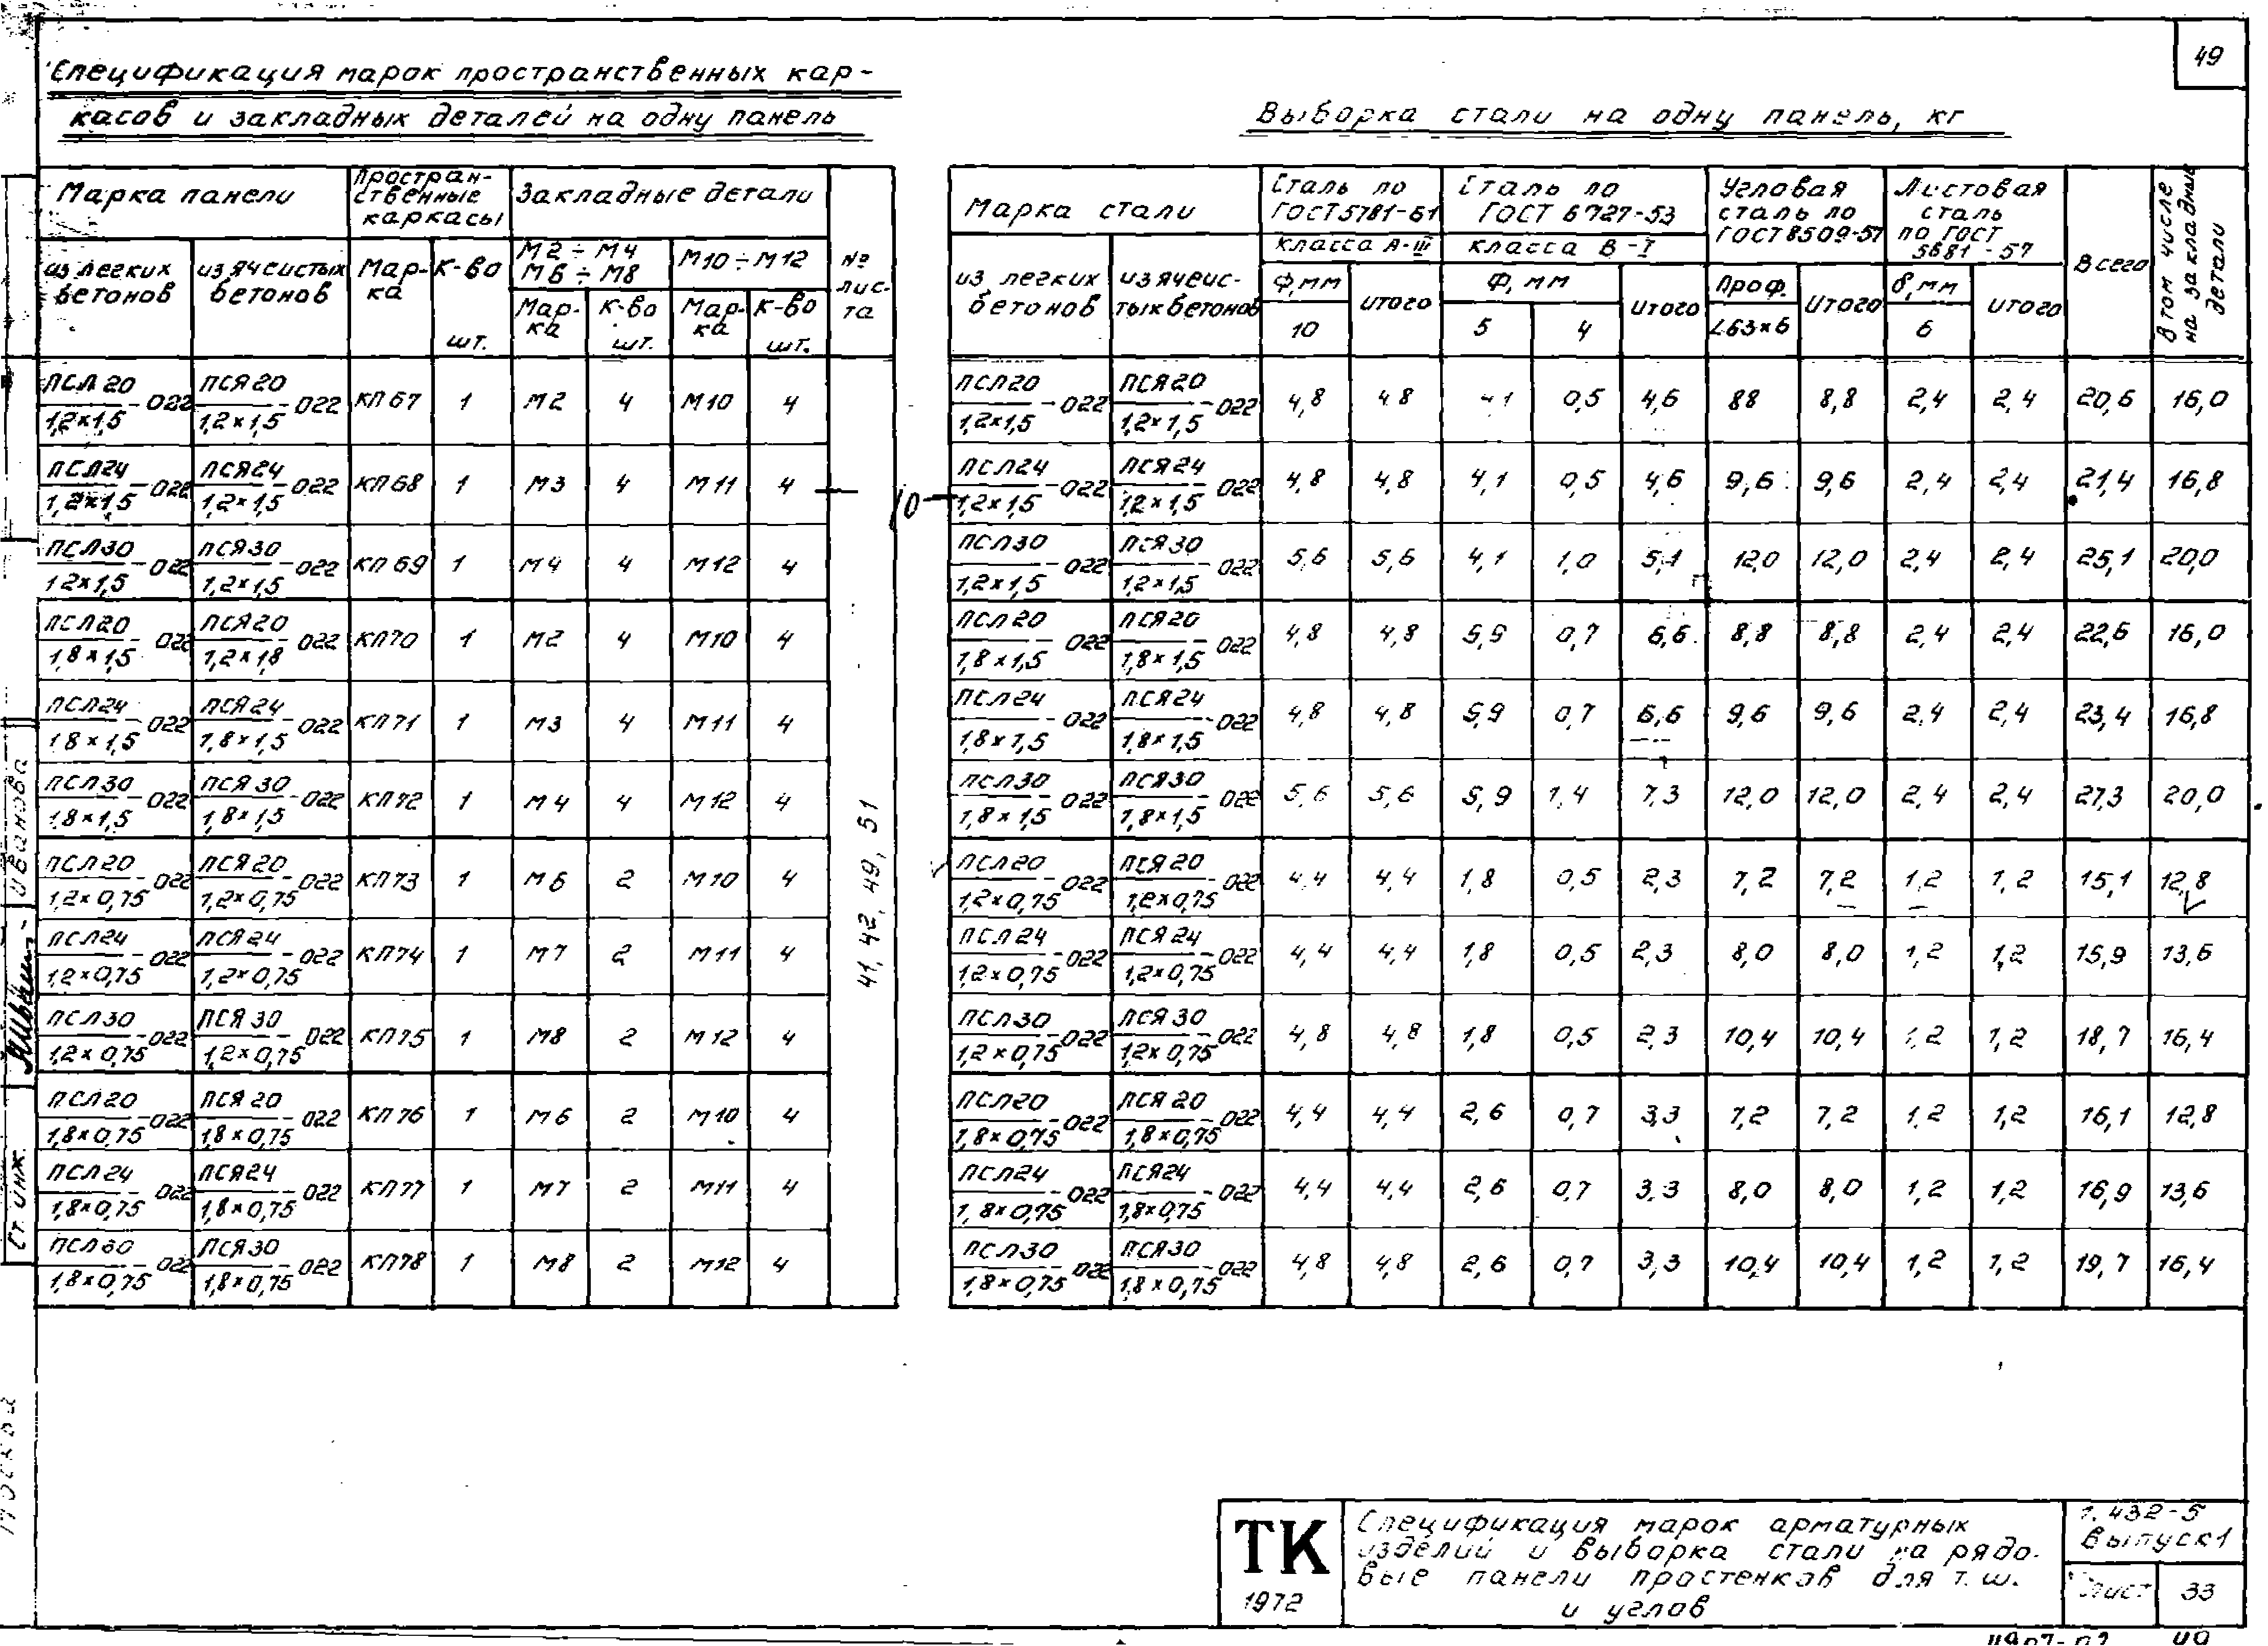 49
Спецификация марок пространственных кар-
касов и закладных деталей на одну панель
Марка панели
Простран-
ственные
каркасы
Закладные детали
№
лис-
та
из легких
бетонов
из ячеистых
бетонов
Мар-
ка
К-во
шт.
М2 ÷ М4
М6 ÷ М8
М10 ÷ М12
Мар-
ка
К-во
шт.
Мар-
ка
К-во
шт.
ПСЛ20/1,2×1,5 -022 ПСЯ20/1,2×1,5 -022 КП67 1 М2 4 М10 4
ПСЛ24/1,2×1,5 -022 ПСЯ24/1,2×1,5 -022 КП68 1 М3 4 М11 4
ПСЛ30/1,2×1,5 -022 ПСЯ30/1,2×1,5 -022 КП69 1 М4 4 М12 4
ПСЛ20/1,8×1,5 -022 ПСЯ20/1,2×1,8 -022 КП70 1 М2 4 М10 4
ПСЛ24/1,8×1,5 -022 ПСЯ24/1,8×1,5 -022 КП71 1 М3 4 М11 4
ПСЛ30/1,8×1,5 -022 ПСЯ30/1,8×1,5 -022 КП72 1 М4 4 М12 4
ПСЛ20/1,2×0,75 -022 ПСЯ20/1,2×0,75 -022 КП73 1 М6 2 М10 4
ПСЛ24/1,2×0,75 -022 ПСЯ24/1,2×0,75 -022 КП74 1 М7 2 М11 4
ПСЛ30/1,2×0,75 -022 ПСЯ30/1,2×0,75 -022 КП75 1 М8 2 М12 4
ПСЛ20/1,8×0,75 -022 ПСЯ20/1,8×0,75 -022 КП76 1 М6 2 М10 4
ПСЛ24/1,8×0,75 -022 ПСЯ24/1,8×0,75 -022 КП77 1 М7 2 М11 4
ПСЛ30/1,8×0,75 -022 ПСЯ30/1,8×0,75 -022 КП78 1 М8 2 М12 4
41, 42, 49, 51
Выборка стали на одну панель, кг
Марка стали
Сталь по
ГОСТ 5781-61
класса А-III
Сталь по
ГОСТ 6727-53
класса В-I
Угловая
сталь по
ГОСТ 8509-57
Листовая
сталь
по ГОСТ
5681-57
Всего
В том числе
на закладные
детали
из легких
бетонов
из ячеис-
тых бетонов
Ф,мм
10
итого
Ф, мм
5 4
итого
Проф.
L63×6
Итого
б,мм
6
итого
ПСЛ20/1,2×1,5 -022 ПСЯ20/1,2×1,5 -022 4,8 4,8 4,1 0,5 4,6 8,8 8,8 2,4 2,4 20,6 16,0
10
ПСЛ24/1,2×1,5 -022 ПСЯ24/1,2×1,5 -022 4,8 4,8 4,1 0,5 4,6 9,6 9,6 2,4 2,4 21,4 16,8
ПСЛ30/1,2×1,5 -022 ПСЯ30/1,2×1,5 -022 5,6 5,6 4,1 1,0 5,1 12,0 12,0 2,4 2,4 25,1 20,0
ПСЛ20/1,8×1,5 -022 ПСЯ20/1,8×1,5 -022 4,8 4,8 5,9 0,7 6,6 8,8 8,8 2,4 2,4 22,6 16,0
ПСЛ24/1,8×1,5 -022 ПСЯ24/1,8×1,5 -022 4,8 4,8 5,9 0,7 6,6 9,6 9,6 2,4 2,4 23,4 16,8
ПСЛ30/1,8×1,5 -022 ПСЯ30/1,8×1,5 -022 5,6 5,6 5,9 1,4 7,3 12,0 12,0 2,4 2,4 27,3 20,0
ПСЛ20/1,2×0,75 -022 ПСЯ20/1,2×0,75 -022 4,4 4,4 1,8 0,5 2,3 7,2 7,2 1,2 1,2 15,1 12,8
ПСЛ24/1,2×0,75 -022 ПСЯ24/1,2×0,75 -022 4,4 4,4 1,8 0,5 2,3 8,0 8,0 1,2 1,2 15,9 13,6
ПСЛ30/1,2×0,75 -022 ПСЯ30/1,2×0,75 -022 4,8 4,8 1,8 0,5 2,3 10,4 10,4 1,2 1,2 18,7 16,4
ПСЛ20/1,8×0,75 -022 ПСЯ20/1,8×0,75 -022 4,4 4,4 2,6 0,7 3,3 7,2 7,2 1,2 1,2 16,1 12,8
ПСЛ24/1,8×0,75 -022 ПСЯ24/1,8×0,75 -022 4,4 4,4 2,6 0,7 3,3 8,0 8,0 1,2 1,2 16,9 13,6
ПСЛ30/1,8×0,75 -022 ПСЯ30/1,8×0,75 -022 4,8 4,8 2,6 0,7 3,3 10,4 10,4 1,2 1,2 19,7 16,4
Ст. инж.
Иванова
Москва
ТК
1972
Спецификация марок арматурных
изделий и выборка стали на рядо-
вые панели простенков для т.ш.
и углов
1.432-5
Выпуск 1
Лист 33